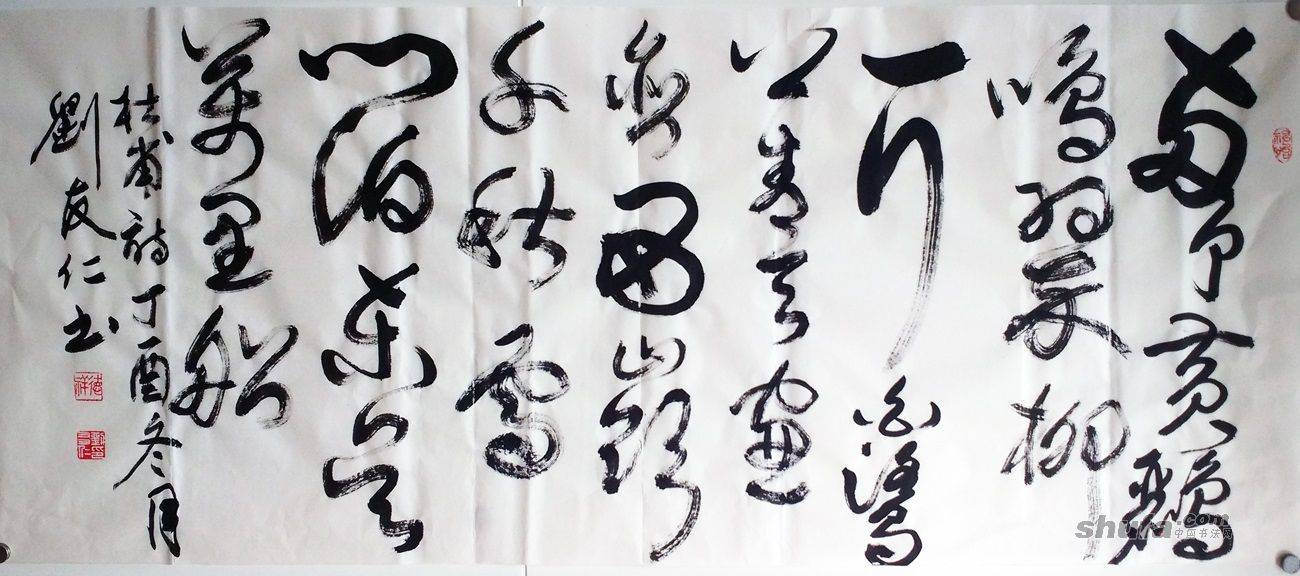 兩个黄鸝
鳴翠柳
一行白鷺
上青天窗
含西嶺
千秋雪
門泊東吴
萬里船
杜甫诗丁酉冬月
劉友仁书
shufa.com
中国书法网